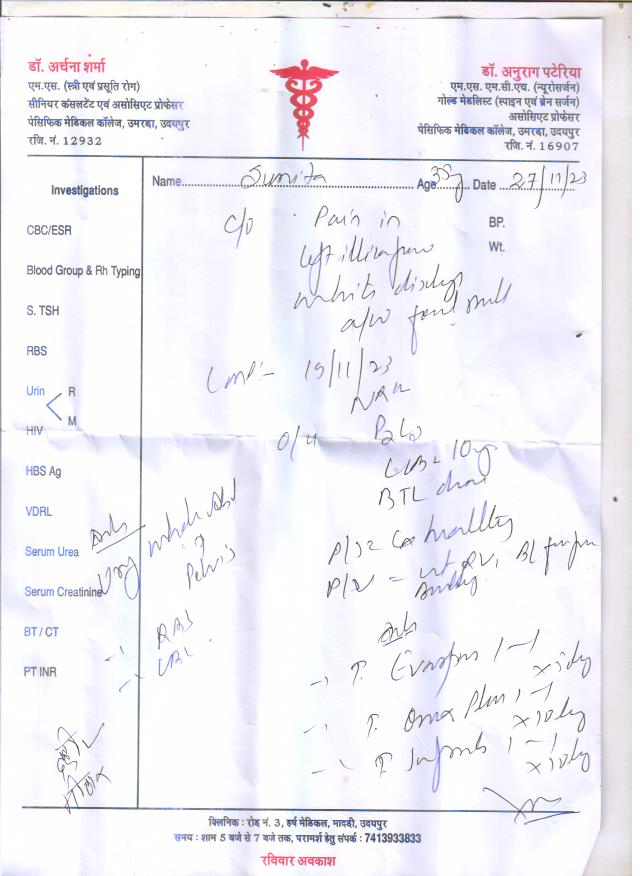 डॉ. अर्चना शर्मा
एम.एस. (स्त्री एवं प्रसूति रोग)
सीनियर कंसलटेंट एवं असोसिएट प्रोफेसर
पेसिफिक मेडिकल कॉलेज, उमरडा, उदयपुर
रजि. नं. 12932
डॉ. अनुराग पटेरिया
एम.एस. एम.सी.एच. (न्यूरोसर्जन)
गोल्ड मेडलिस्ट (स्पाइन एवं ब्रेन सर्जन)
असोसिएट प्रोफेसर
पेसिफिक मेडिकल कॉलेज, उमरडा, उदयपुर
रजि. नं. 16907
Name Sumita Age 35y Date 27/11/23
Investigations
CBC/ESR
Blood Group & Rh Typing
S. TSH
RBS
Urin R
M
HIV
HBS Ag
VDRL
Serum Urea
Serum Creatinine
BT / CT
PT INR
BP.
Wt.
c/o Pain in
left
white
a/w foul smell
LMP:- 19/11/23
O/H P2L2
LCB = 10y
BTL done
P/S = Cx healthy
P/V =
Adv
Pelvis
RBS
CBC
Adv
→ T. 1-1
x
→ T. 1-1
x10day
→ T. 1-1
x10day
क्लिनिक : रोड नं. 3, हर्ष मेडिकल, मादडी, उदयपुर
समय : शाम 5 बजे से 7 बजे तक, परामर्श हेतु संपर्क : 7413933833
रविवार अवकाश